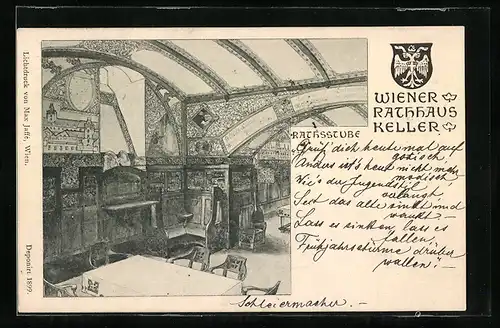 Lichtdruck von Max Jaffé, Wien.
Deponirt 1899.
WIENER
RATHHAUS
KELLER
RATHSSTUBE
Grüß' dich heute mal auf
gotisch,
Anders ist's heut nicht mehr
modisch,
Wie's du Jugendstil
erlaubst,
Seit das alte sinkt und
wankt. –
Lass es sinken, lass es
fallen,
Frühjahrsstürme drüber
wallen". –
Schleiermacher. –